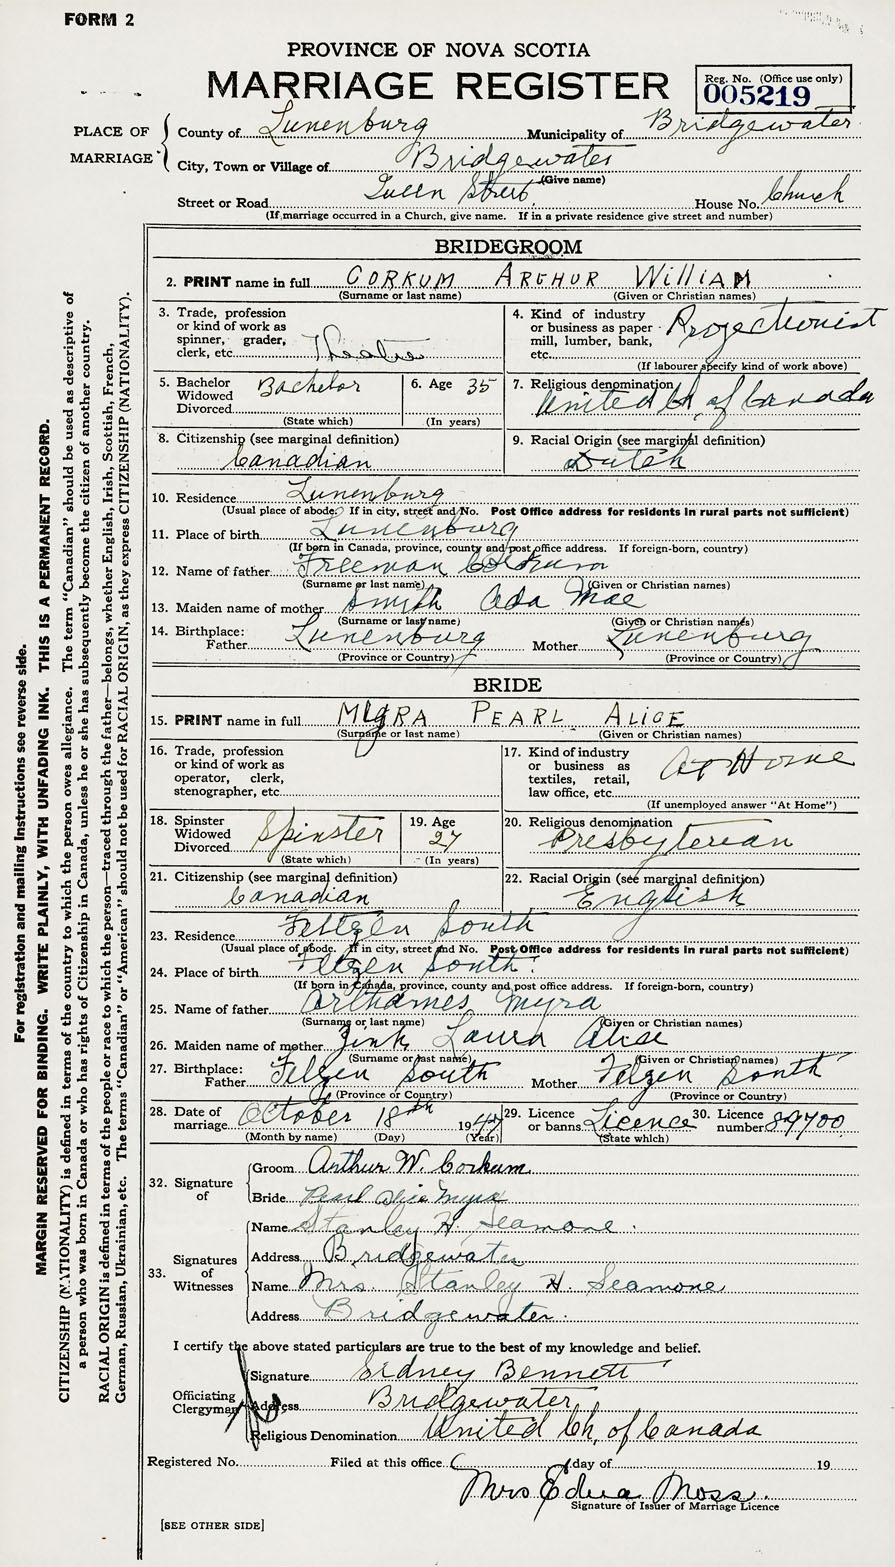 FORM 2
PROVINCE OF NOVA SCOTIA
MARRIAGE REGISTER
Reg. No. (Office use only)
005219
PLACE OF MARRIAGE
County of Lunenburg Municipality of Bridgewater
City, Town or Village of Bridgewater
(Give name)
Street or Road Queen Street House No. Church
(If marriage occurred in a Church, give name. If in a private residence give street and number)
BRIDEGROOM
2. PRINT name in full CORKUM ARTHUR WILLIAM
(Surname or last name) (Given or Christian names)
3. Trade, profession or kind of work as spinner, grader, clerk, etc. Theatre
4. Kind of industry or business as paper mill, lumber, bank, etc. Projectionist
(If labourer specify kind of work above)
5. Bachelor Widowed Divorced Bachelor
(State which)
6. Age 35
(In years)
7. Religious denomination United Ch. of Canada
8. Citizenship (see marginal definition) Canadian
9. Racial Origin (see marginal definition) Dutch
10. Residence Lunenburg
(Usual place of abode. If in city, street and No. Post Office address for residents in rural parts not sufficient)
11. Place of birth Lunenburg
(If born in Canada, province, county and post office address. If foreign-born, country)
12. Name of father Freeman Corkum
(Surname or last name) (Given or Christian names)
13. Maiden name of mother Smith Ada Mae
(Surname or last name) (Given or Christian names)
14. Birthplace: Father Lunenburg Mother Lunenburg
(Province or Country) (Province or Country)
BRIDE
15. PRINT name in full MYRA PEARL ALICE
(Surname or last name) (Given or Christian names)
16. Trade, profession or kind of work as operator, clerk, stenographer, etc.
17. Kind of industry or business as textiles, retail, law office, etc. At Home
(If unemployed answer "At Home")
18. Spinster Widowed Divorced Spinster
(State which)
19. Age 27
(In years)
20. Religious denomination Presbyterian
21. Citizenship (see marginal definition) Canadian
22. Racial Origin (see marginal definition) English
23. Residence Feltzen South
(Usual place of abode. If in city, street and No. Post Office address for residents in rural parts not sufficient)
24. Place of birth Feltzen South
(If born in Canada, province, county and post office address. If foreign-born, country)
25. Name of father Arthames Myra
(Surname or last name) (Given or Christian names)
26. Maiden name of mother Zink Laura Alice
(Surname or last name) (Given or Christian names)
27. Birthplace: Father Felzen South Mother Felzen South
(Province or Country) (Province or Country)
28. Date of marriage October 18th 1947
(Month by name) (Day) (Year)
29. Licence or banns Licence
(State which)
30. Licence number 89700
32. Signature of
Groom Arthur W. Corkum
Bride Pearl Alice Myra
33. Signatures of Witnesses
Name Stanley H. Seamone
Address Bridgewater
Name Mrs. Stanley H. Seamone
Address Bridgewater
I certify the above stated particulars are true to the best of my knowledge and belief.
Officiating Clergyman
Signature Sidney Bennett
Address Bridgewater
Religious Denomination United Ch. of Canada
Registered No. Filed at this office day of 19
Mrs Edna Moss
Signature of Issuer of Marriage Licence
[SEE OTHER SIDE]
For registration and mailing instructions see reverse side.
MARGIN RESERVED FOR BINDING. WRITE PLAINLY, WITH UNFADING INK. THIS IS A PERMANENT RECORD.
CITIZENSHIP (NATIONALITY) is defined in terms of the country to which the person owes allegiance. The term "Canadian" should be used as descriptive of
a person who was born in Canada or who has rights of Citizenship in Canada, unless he or she has subsequently become the citizen of another country.
RACIAL ORIGIN is defined in terms of the people or race to which the person—traced through the father—belongs, whether English, Irish, Scottish, French,
German, Russian, Ukrainian, etc. The terms "Canadian" or "American" should not be used for RACIAL ORIGIN, as they express CITIZENSHIP (NATIONALITY).